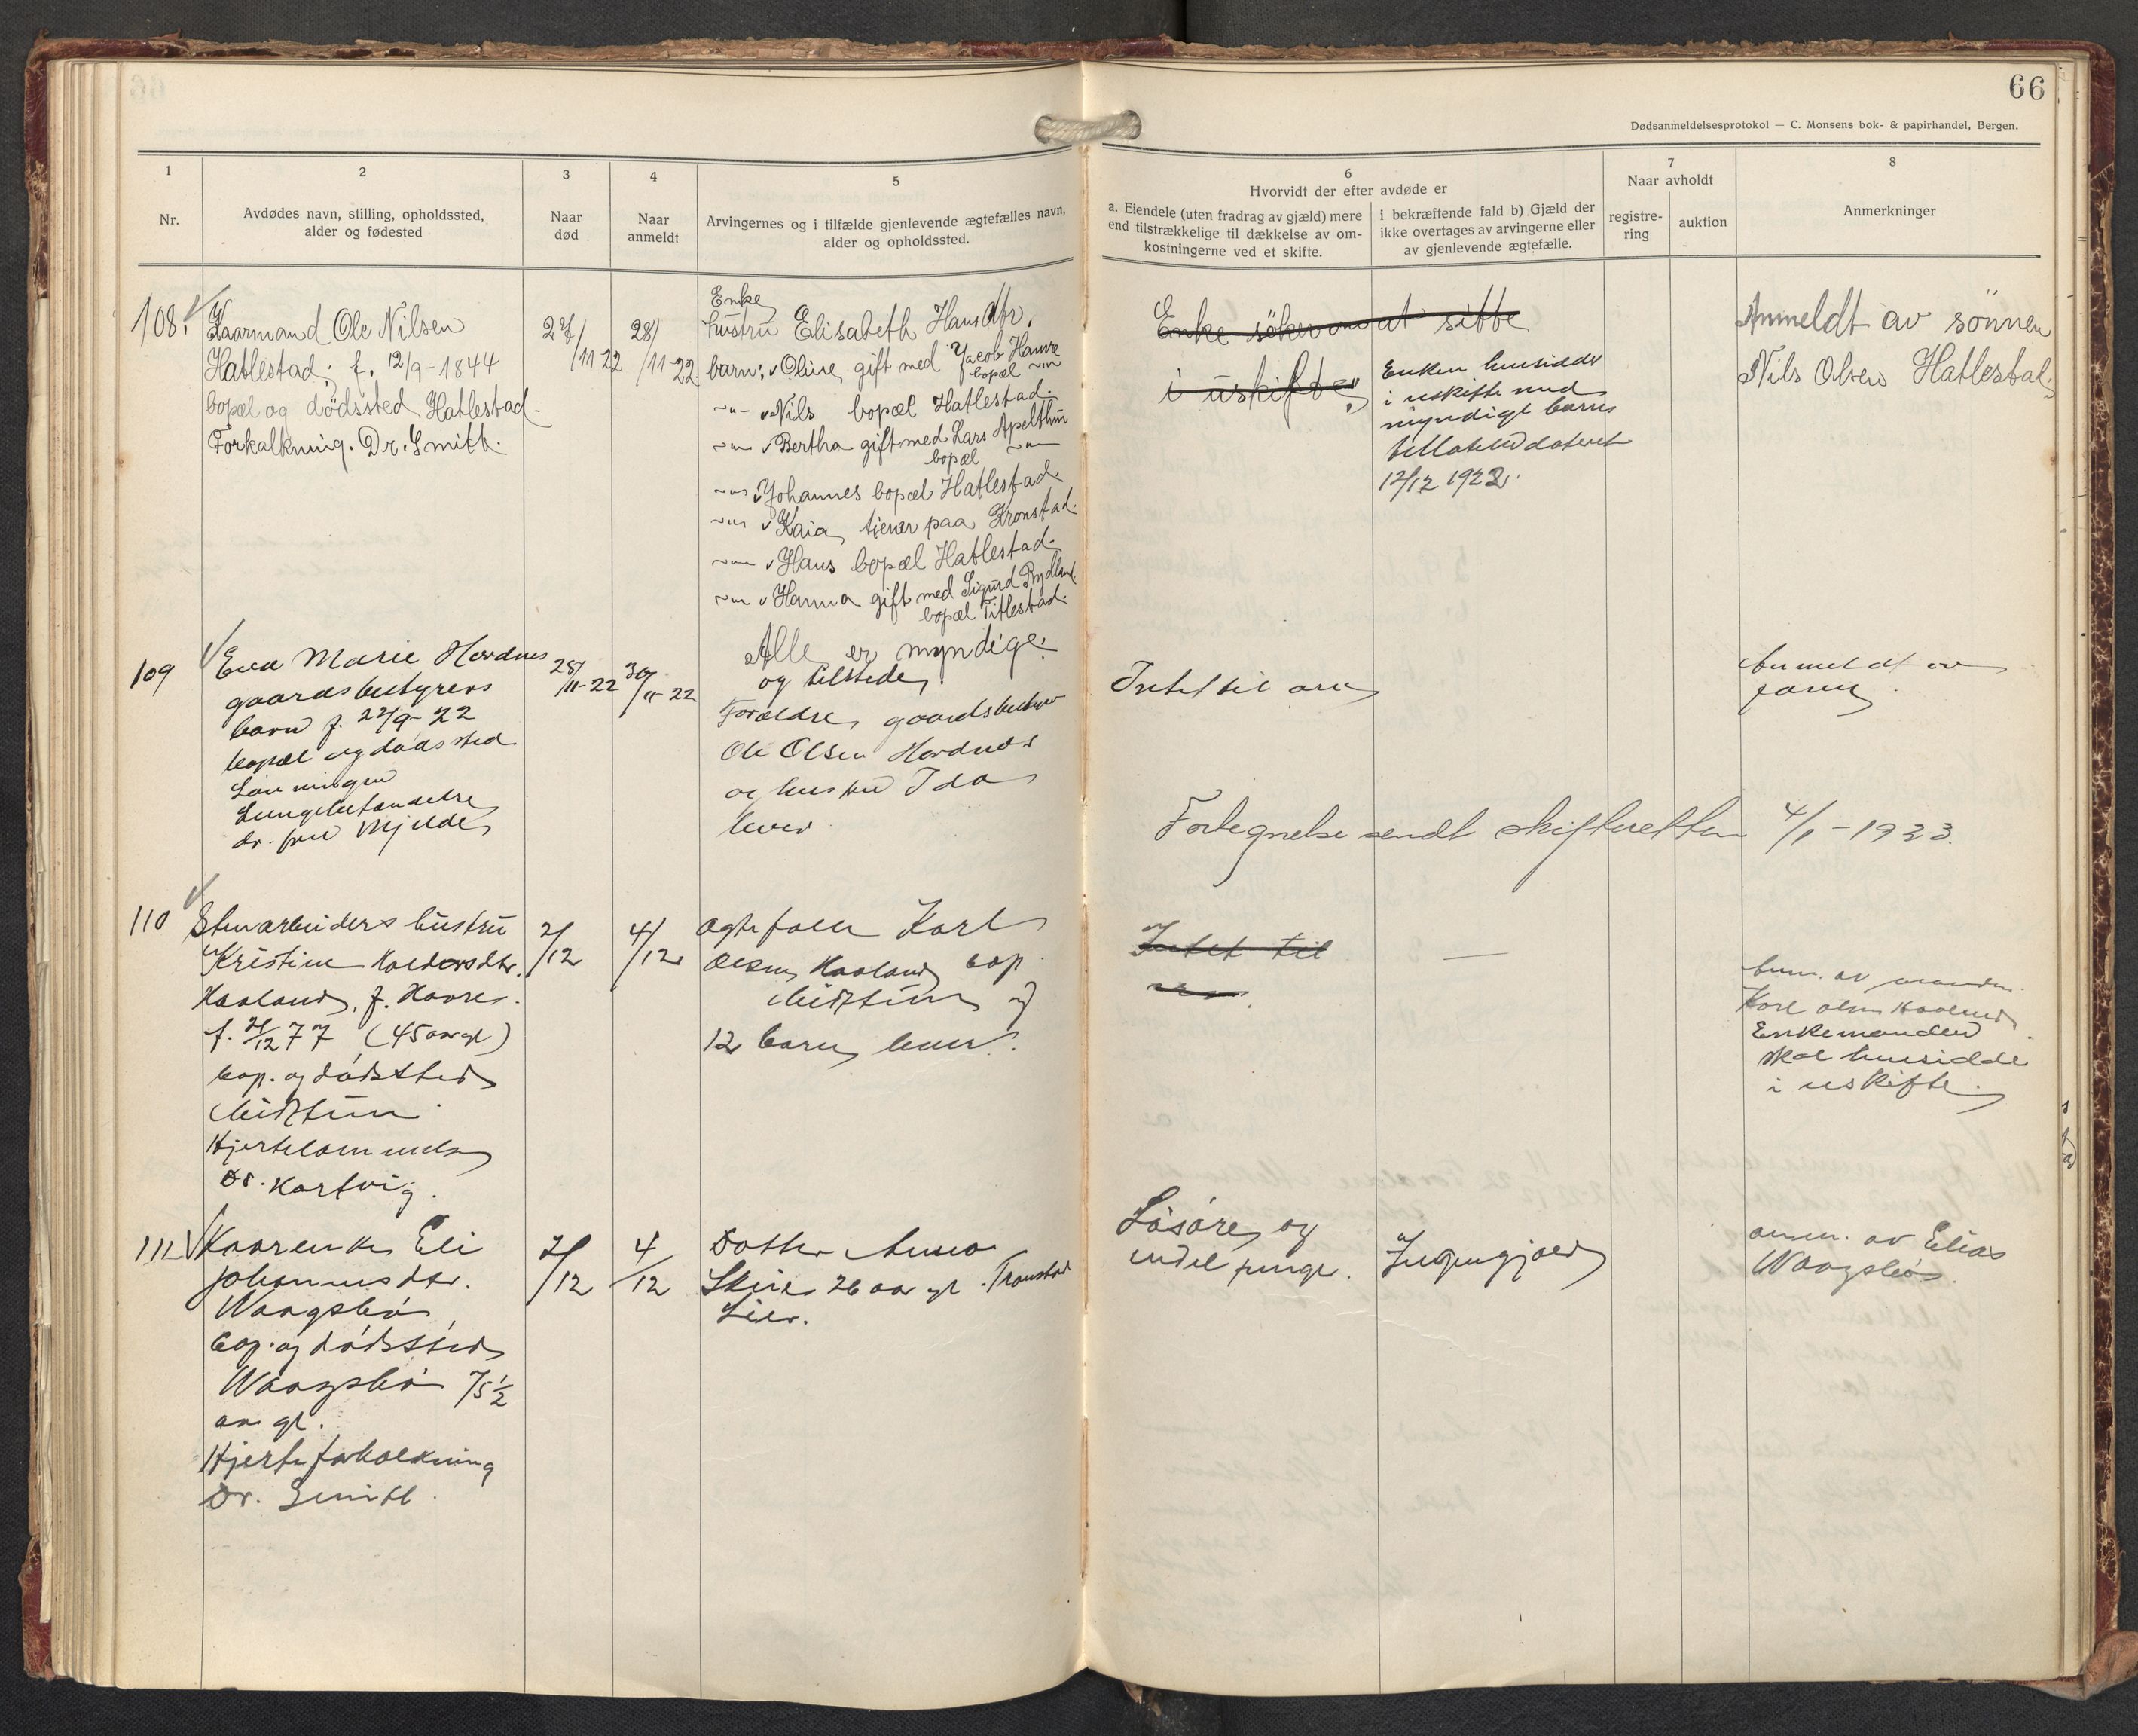 66
Dødsanmeldelsesprotokol — C. Monsens bok- & papirhandel, Bergen.
1
Nr.
2
Avdødes navn, stilling, opholdssted,
alder og fødested
3
Naar
død
4
Naar
anmeldt
5
Arvingernes og i tilfælde gjenlevende ægtefælles navn,
alder og opholdssted.
6
Hvorvidt der efter avdøde er
a. Eiendele (uten fradrag av gjæld) mere
end tilstrækkelige til dækkelse av om-
kostningerne ved et skifte.
i bekræftende fald b) Gjæld der
ikke overtages av arvingerne eller
av gjenlevende ægtefælle.
7
Naar avholdt
registre-
ring
auktion
8
Anmerkninger
108.
Kaarmand Ole Nilsen
Hatlestad; f. 12/9-1844
bopæl og dödssted Hatlestad.
Forkalkning. Dr. Smith.
27/11-22
28/11-22
Enke
hustru Elisabeth Hansdtr.
barn: Oline gift med Jacob Hauve
bopæl
Nils bopæl Hatlestad.
Bertha gift med Lars Apelthun
bopæl
Johannes bopæl Hatlestad.
Kaia, tiener paa Kronstad.
Hans bopæl Hatlestad.
Hanna gift med Sigurd Rydland
bopæl Titlestad.
Alle er myndige.
og tilstede.
Enke söker om at sitte
i uskifte
Enken hensidder
i uskifte med
myndige barns
tillatelse dateret
12/12 1922.
Anmeldt av sönnen
Nils Olsen Hatlestad.
109
Eva Marie Hordnes
gaardsbestyrers
barn f. 22/9-22
bopæl og dødssted
Lönningen
Lungebetændelse
dr. fru Mjelde
28/11-22
30/11-22
Forældre, gaardsbestyrer
Ole Olsen Hordnes
og hustru Ida
lever
Intet til arv
Anmeldt av
faren.
Fortegnelse sendt skifteretten 4/1-1923.
110
Stenarbeiders hustru
Kristine
Haaland, f. Havre.
f. 2/12 77 (45 aar gl)
bop. og dødssted
Midttun.
Hjertelammelse
Dr. Hartvig.
2/12
4/12
Ægtefælle Karl
Olsen Haaland bop.
Midttun og
12 barn lever.
Intet til
arv.
—
Anm. av manden
Karl Olsen Haaland
Enkemanden
skal hensidde
i uskifte.
111
Kaarenke Eli
Johannesdtr.
Waagsbø,
bop. og dødssted
Waagsbø 75½
aar gl.
Hjerteforkalkning
Dr. Smith.
2/12
4/12
Datter Anna
26 aar gl. Transtad
Lier.
Løsøre og
endel penge.
Ingen gjæld
anm. av Elias
Waagsbø.